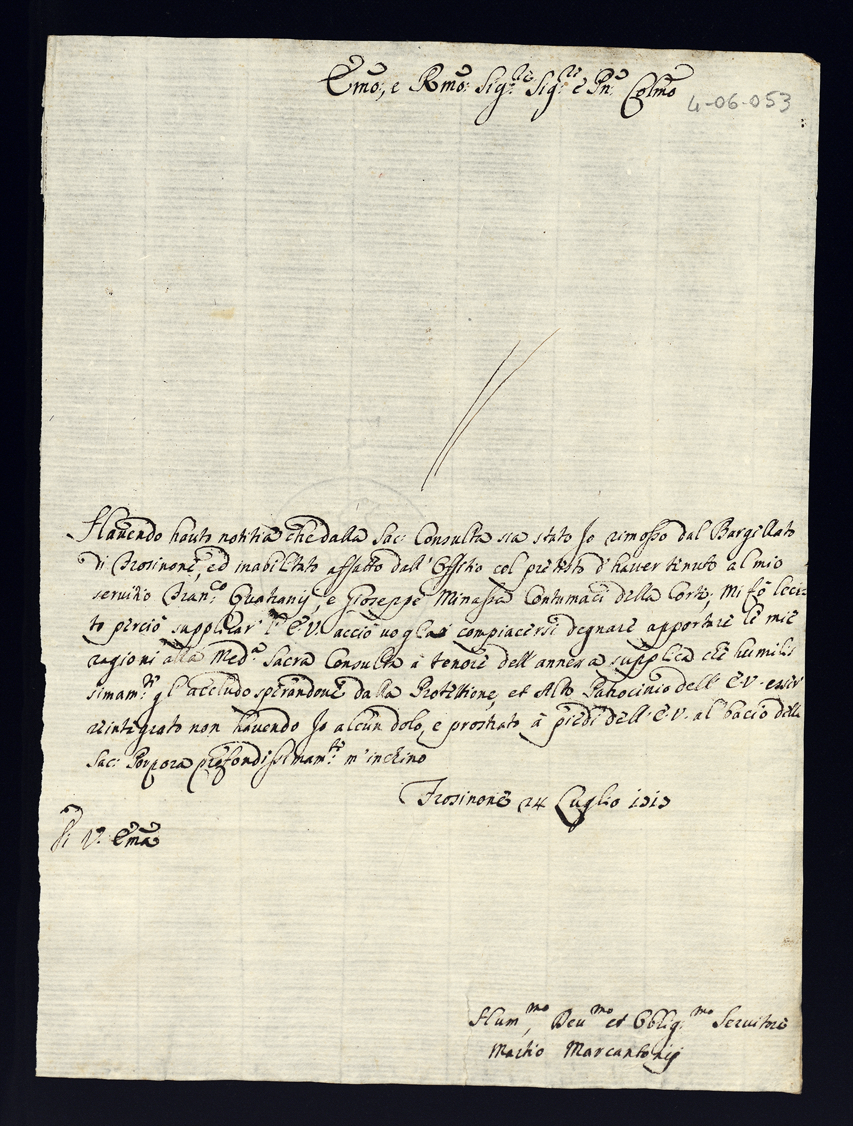 Emo:, e Rmo: Sig.re Sig.re e Pn.e Colmo
4-06-053
Havendo hauto notitia che dalla Sac: Consulta sia stato Jo rimosso dal Bargillato
di Frosinone, ed inabilitato affatto dall'Offitio col pretesto d'haver tenuto al mio
servitio Fran.co Quatranij, e Gioseppe Minassa Contumaci della Corte, Mi fò leci-
to perciò supplicar l'E.V. acciò voglia compiacersi degnare apportare le mie
ragioni alla Med.a Sacra Consulta à tenore dell'annessa supplica che humilis
simam.te gl'accludo sperandone dalla Protettione, et Alto Patrocinio dell'E.V. esser
reintegrato non havendo Jo alcun dolo, e prostrato à piedi dell'E.V. al bacio della
Sac: Porpora profondissimam.te m'inchino
Frosinone 24 Luglio 1313
Di V. Ema
Hum.mo, Dev.mo et Oblig.mo Servitore
Marcantonij